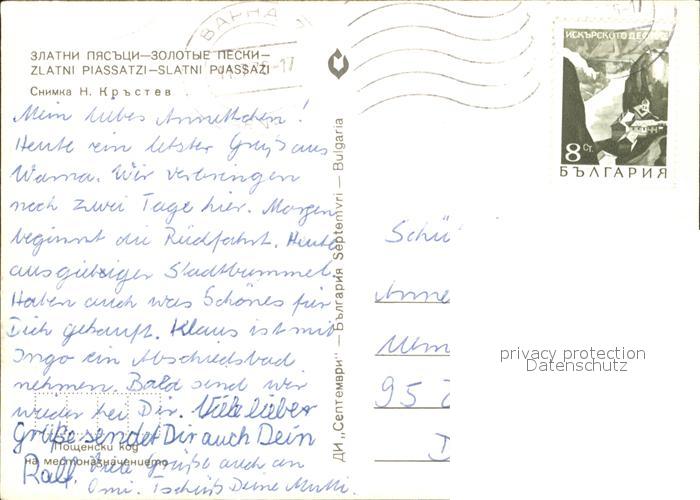 ВАРНА
ЗЛАТНИ ПЯСЪЦИ—ЗОЛОТЫЕ ПЕСКИ—
ZLATNI PIASSATZI—SLATNI PJASSAZI
Снимка Н. Кръстев
Mein liebes Annettchen!
Heute ein letzter Gruß aus
Warna. Wir verbringen
noch zwei Tage hier. Morgen
beginnt die Rückfahrt. Heute
ausgiebiger Stadtbummel.
Haben auch was Schönes für
Dich gekauft. Klaus ist mit
Ingo ein Abschiedsbad
nehmen. Bald sind wir
wieder bei Dir. Viele lieber
Grüße sendet Dir auch Dein
Ralf. Viele Grüße auch an
Omi. Tschüß Deine Mutti.
Пощенски код
на местоназначението
ДИ „Септември" — България Septemvri — Bulgaria
ИСКЪРСКОТО ДЕФИЛЕ
8 СТ.
БЪЛГАРИЯ
Schü
Anne
95
privacy protection
Datenschutz